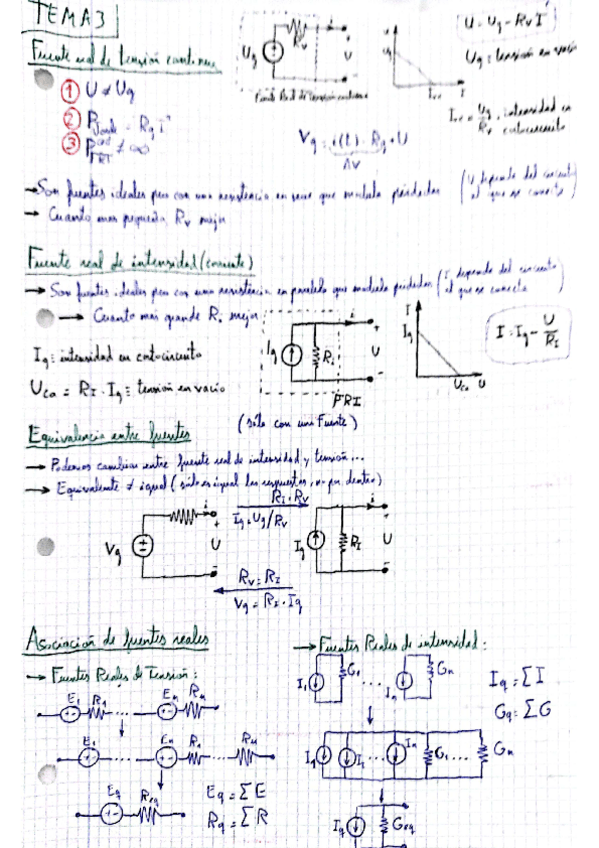 TEMA 3
Fuente real de tensión continua
Ug
Rv
i
+
U
-
Fuente Real de tensión continua
U
Ug
Icc
I
U = Ug - Rv I
Ug = tensión en vacío
Icc = Ug/Rv = intensidad en cortocircuito
① U ≠ Ug
②
③
→ Son fuentes ideales pero con una resistencia en serie que modula pérdidas (V depende del circuito al que se conecta)
→ Cuanto más pequeña Rv mejor
Fuente real de intensidad (corriente)
→ Son fuentes ideales pero con una resistencia en paralelo que modula pérdidas (I depende del circuito al que se conecta)
→ Cuanto más grande Ri mejor
Ig = intensidad en cortocircuito
Uca = RI · Ig = tensión en vacío
Ig
Ri
i
+
U
-
FRI
I
Ig
Uca
U
I = Ig - U/RI
Equivalencia entre fuentes (sólo con una Fuente)
→ Podemos cambiar entre fuente real de intensidad y tensión...
→ Equivalente ≠ igual (sólo es igual las respuestas, no por dentro)
Vg
i
+
U
-
RI = Rv
Ig = Ug/Rv
Rv = RI
Vg = RI · Ig
Ig
RI
i
+
U
-
Asociación de fuentes reales
→ Fuentes Reales de Tensión:
E1 R1 ... En Rn
E1 ... En R1 ... Rn
Eq Req
Eq = ΣE
Rq = ΣR
→ Fuentes Reales de intensidad:
I1 G1 ... In Gn
Iq = ΣI
Gq = ΣG
In G1 ... Gn
Iq Geq